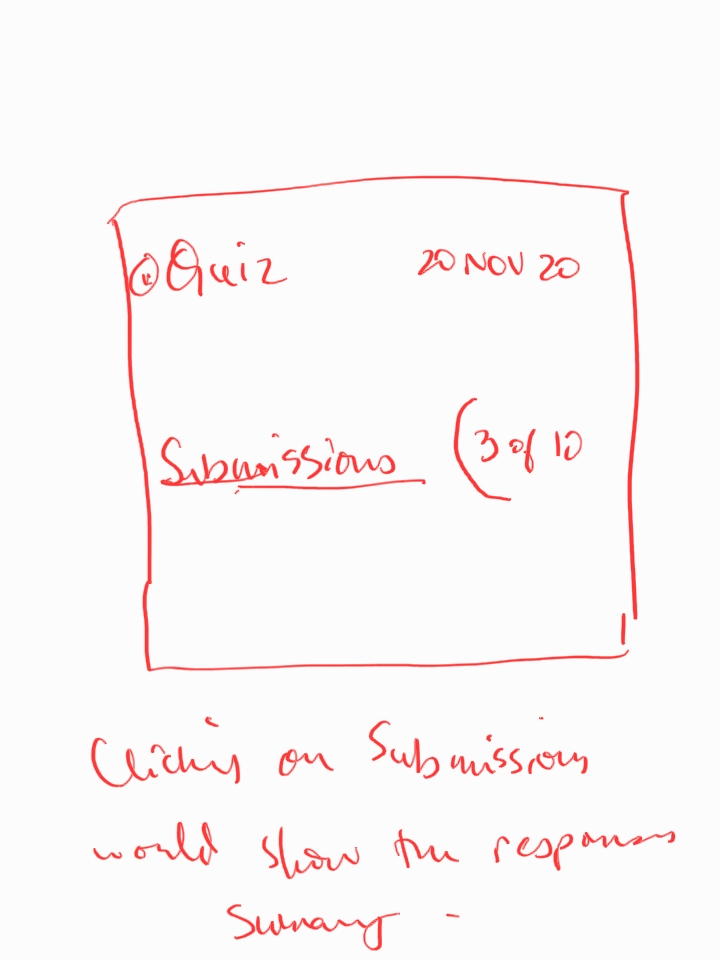 Quiz 20 NOV 20
Submissions (3 of 10
Clicking on Submissions
would show the responses
Sumary -